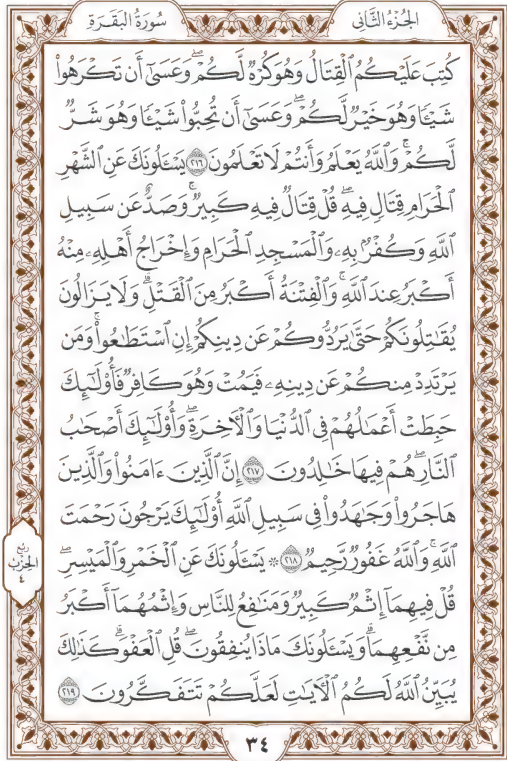 الجُزْءُ الثَّانِي
سُورَةُ البَقَرَةِ
كُتِبَ عَلَيْكُمُ ٱلْقِتَالُ وَهُوَ كُرْهٌ لَّكُمْ ۖ وَعَسَىٰٓ أَن تَكْرَهُوا۟
شَيْـًٔا وَهُوَ خَيْرٌ لَّكُمْ ۖ وَعَسَىٰٓ أَن تُحِبُّوا۟ شَيْـًٔا وَهُوَ شَرٌّ
لَّكُمْ ۗ وَٱللَّهُ يَعْلَمُ وَأَنتُمْ لَا تَعْلَمُونَ ٢١٦ يَسْـَٔلُونَكَ عَنِ ٱلشَّهْرِ
ٱلْحَرَامِ قِتَالٍ فِيهِ ۖ قُلْ قِتَالٌ فِيهِ كَبِيرٌ ۖ وَصَدٌّ عَن سَبِيلِ
ٱللَّهِ وَكُفْرٌۢ بِهِۦ وَٱلْمَسْجِدِ ٱلْحَرَامِ وَإِخْرَاجُ أَهْلِهِۦ مِنْهُ
أَكْبَرُ عِندَ ٱللَّهِ ۚ وَٱلْفِتْنَةُ أَكْبَرُ مِنَ ٱلْقَتْلِ ۗ وَلَا يَزَالُونَ
يُقَـٰتِلُونَكُمْ حَتَّىٰ يَرُدُّوكُمْ عَن دِينِكُمْ إِنِ ٱسْتَطَـٰعُوا۟ ۚ وَمَن
يَرْتَدِدْ مِنكُمْ عَن دِينِهِۦ فَيَمُتْ وَهُوَ كَافِرٌ فَأُو۟لَـٰٓئِكَ
حَبِطَتْ أَعْمَـٰلُهُمْ فِى ٱلدُّنْيَا وَٱلْـَٔاخِرَةِ ۖ وَأُو۟لَـٰٓئِكَ أَصْحَـٰبُ
ٱلنَّارِ ۖ هُمْ فِيهَا خَـٰلِدُونَ ٢١٧ إِنَّ ٱلَّذِينَ ءَامَنُوا۟ وَٱلَّذِينَ
هَاجَرُوا۟ وَجَـٰهَدُوا۟ فِى سَبِيلِ ٱللَّهِ أُو۟لَـٰٓئِكَ يَرْجُونَ رَحْمَتَ
ٱللَّهِ ۚ وَٱللَّهُ غَفُورٌ رَّحِيمٌ ٢١٨ ۞ يَسْـَٔلُونَكَ عَنِ ٱلْخَمْرِ وَٱلْمَيْسِرِ ۖ
قُلْ فِيهِمَآ إِثْمٌ كَبِيرٌ وَمَنَـٰفِعُ لِلنَّاسِ وَإِثْمُهُمَآ أَكْبَرُ
مِن نَّفْعِهِمَا ۗ وَيَسْـَٔلُونَكَ مَاذَا يُنفِقُونَ ۖ قُلِ ٱلْعَفْوَ ۗ كَذَٰلِكَ
يُبَيِّنُ ٱللَّهُ لَكُمُ ٱلْـَٔايَـٰتِ لَعَلَّكُمْ تَتَفَكَّرُونَ ٢١٩
رُبع
الحِزْب
٤
٣٤